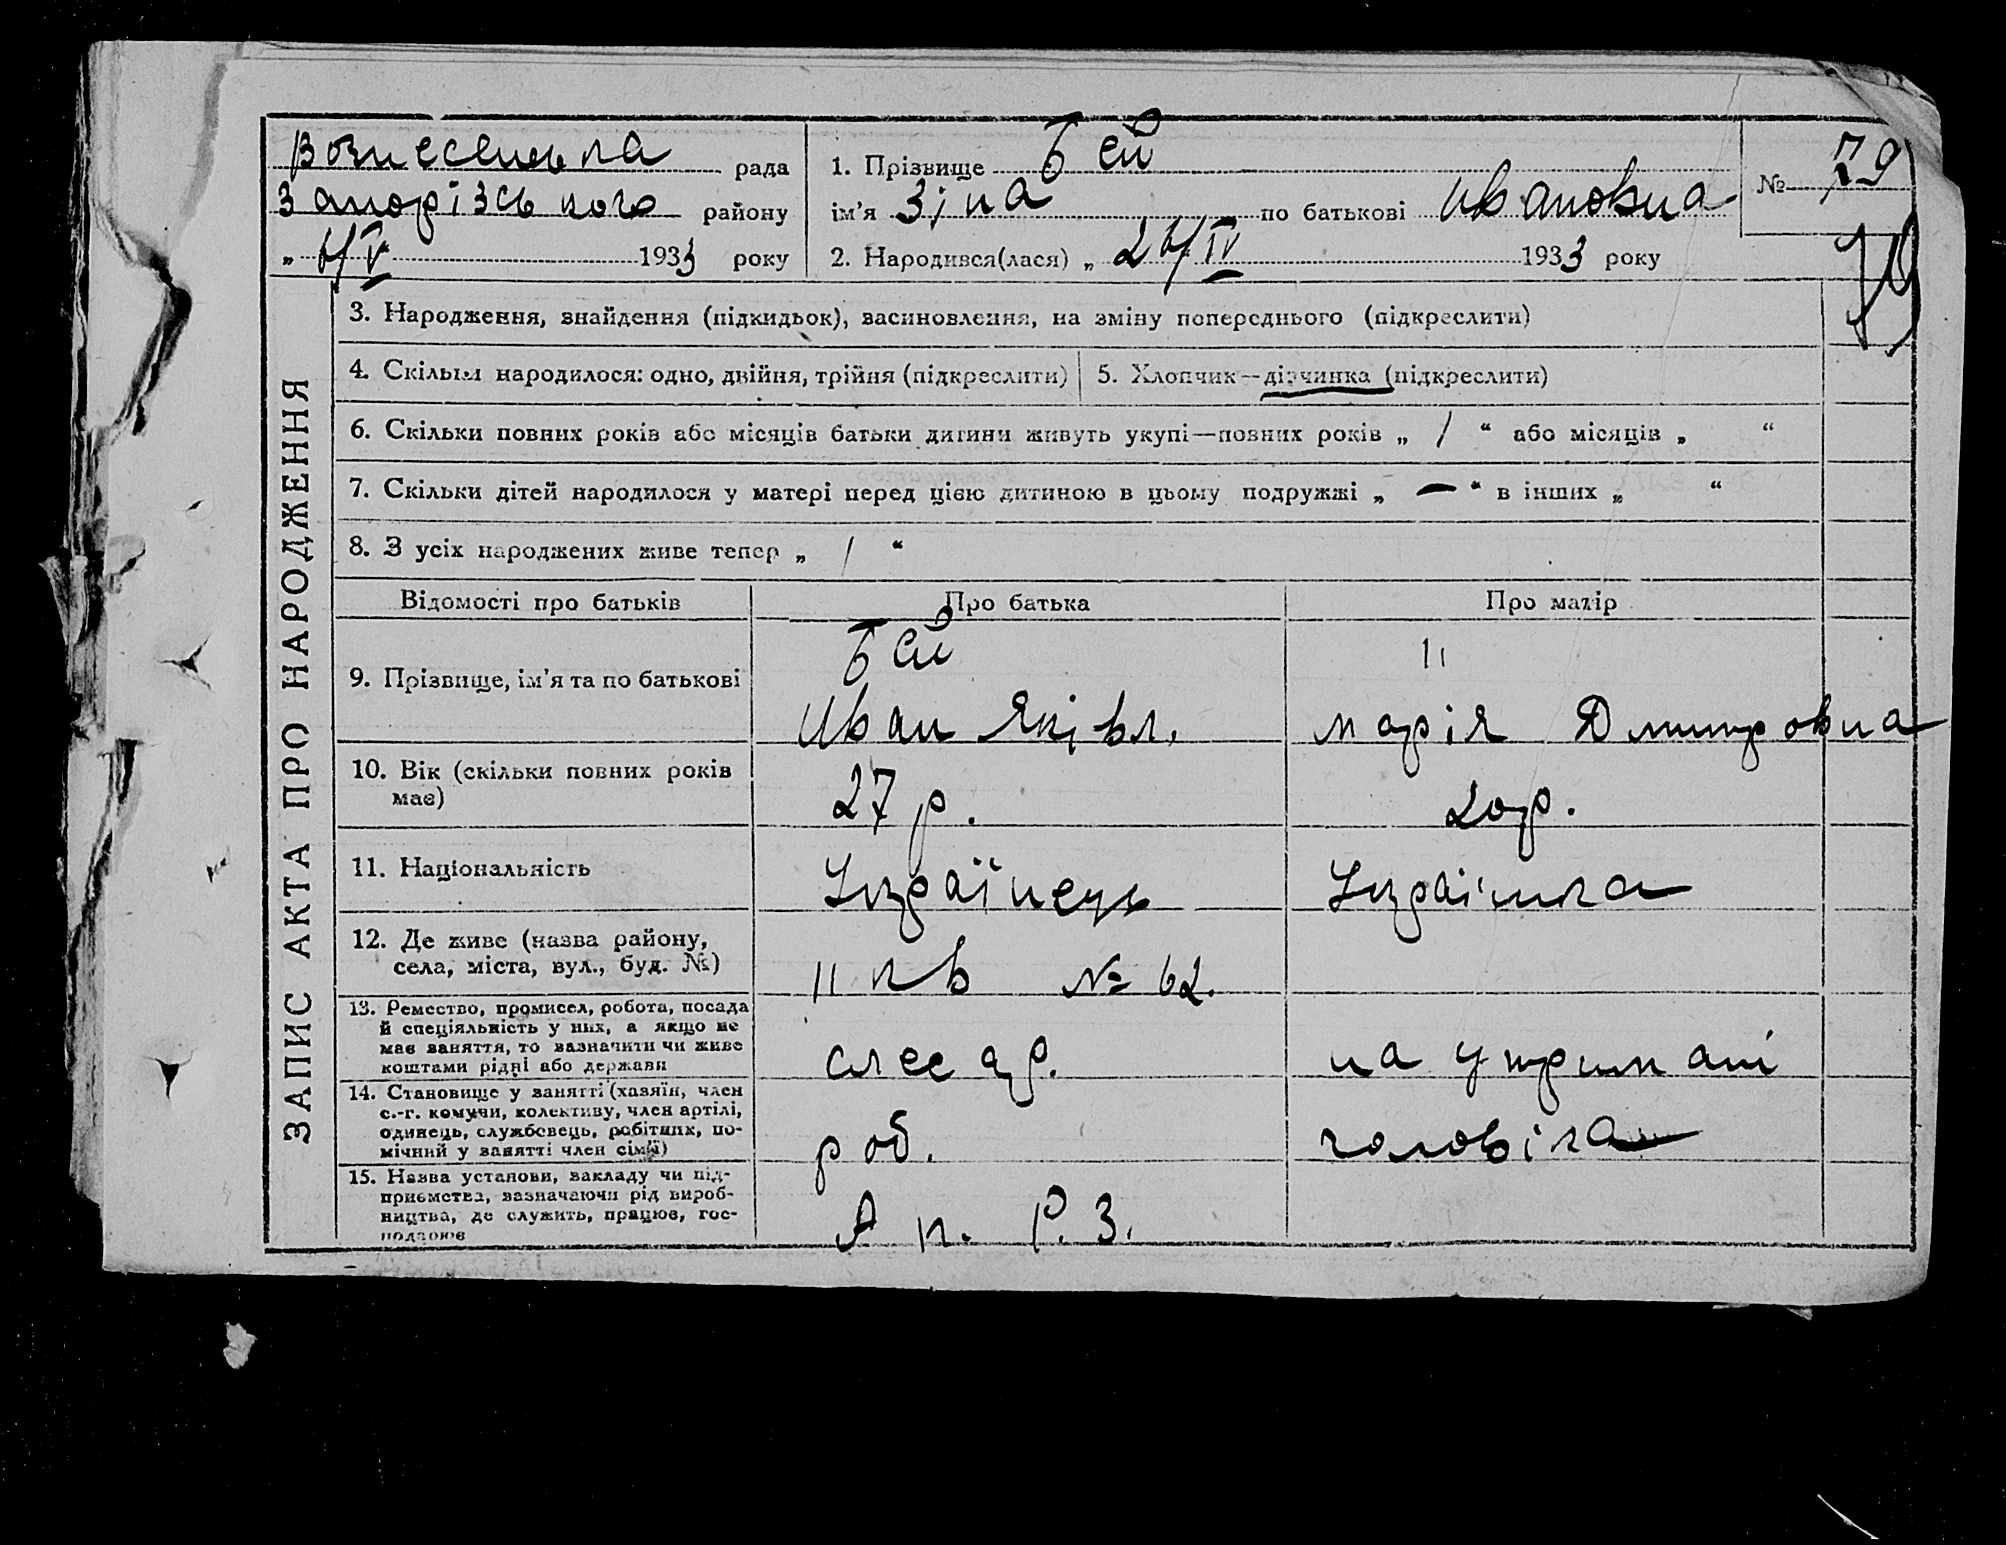 Вознесенська рада
Запорізського району
„ 6/V 1933 року
1. Прізвище Бей
ім'я Зіна по батькові Ивановна
2. Народився(лася) „ 26/IV 1933 року
№ 79
79
ЗАПИС АКТА ПРО НАРОДЖЕННЯ
3. Народження, знайдення (підкидьок), засиновлення, на зміну попереднього (підкреслити)
4. Скільки народилося: одно, двійня, трійня (підкреслити)
5. Хлопчик—дівчинка (підкреслити)
6. Скільки повних років або місяців батьки дитини живуть укупі—повних років „ 1 “ або місяців „ “
7. Скільки дітей народилося у матері перед цією дитиною в цьому подружжі „ — “ в інших „ “
8. З усіх народжених живе тепер „ 1 “
Відомості про батьків
Про батька
Про матір
9. Прізвище, ім'я та по батькові
Бей
Иван Яківл.
"
Марія Дмитровна
10. Вік (скільки повних років
має)
27 р.
20 р.
11. Національність
Українець
Українка
12. Де живе (назва району,
села, міста, вул., буд. №)
11 кв № 62.
13. Ремество, промисел, робота, посада
й спеціяльність у них, а якщо не
має заняття, то зазначити чи живе
коштами рідні або держави
слесар.
на утримані
14. Становище у занятті (хазяїн, член
с.-г. комуни, колективу, член артілі,
одинець, службовець, робітник, по-
мічний у занятті член сім'ї)
роб.
чоловіка
15. Назва установи, закладу чи під-
приємства, зазначаючи рід вироб-
ництва, де служить, працює, гос-
подарює
А к. Р. З.